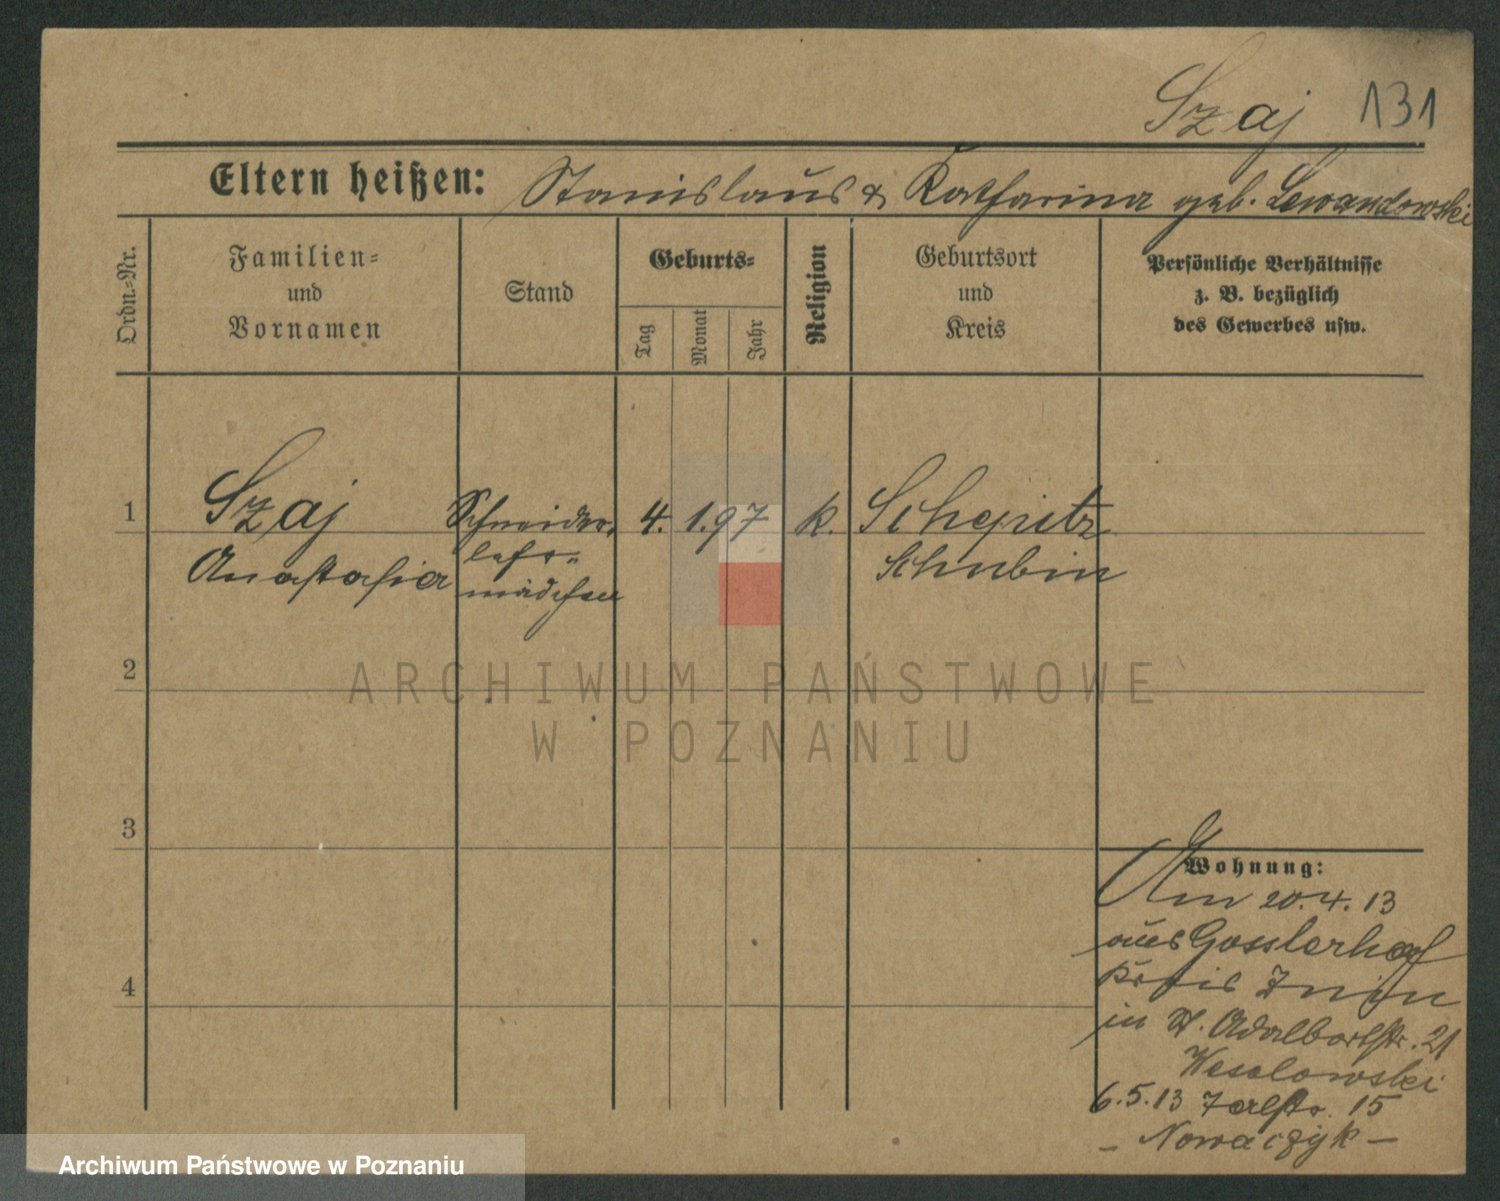 Szaj 131
Eltern heißen: Stanislaus & Katharina geb. Lewandowski
Ordn.-Nr.
Familien-
und
Vornamen
Stand
Geburts-
Tag
Monat
Jahr
Religion
Geburtsort
und
Kreis
Persönliche Verhältnisse
z. B. bezüglich
des Gewerbes usw.
1 Szaj Schneider- 4. 1. 97 k. Schepitz
Anastasia lehr- Schubin
mädchen
2
ARCHIWUM PAŃSTWOWE
W POZNANIU
3
Wohnung:
Am 20.4.13
aus Gosslerhof
Kreis Znin
in St. Adalbertstr. 21
Wesolowski
6.5.13 15
– Nowaczyk –
4
Archiwum Państwowe w Poznaniu